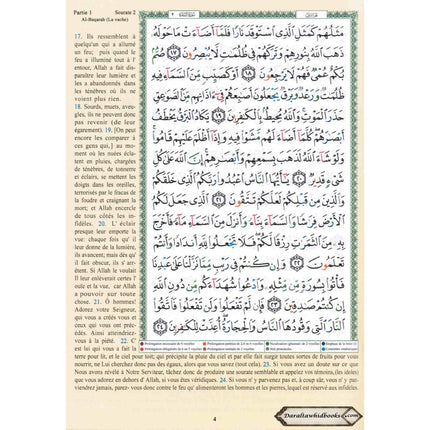 Partie 1 Sourate 2
Al-Baqarah (La vache)
17. Ils ressemblent à
quelqu'un qui a allumé
un feu; puis quand le
feu a illuminé tout à l'
entour, Allah a fait dis-
paraître leur lumière et
les a abandonnés dans
les ténèbres où ils ne
voient plus rien.
18. Sourds, muets, aveu-
gles, ils ne peuvent donc
pas revenir (de leur
égarement). 19. [On peut
encore les comparer à
ces gens qui,] au mo-
ment où les nuées écla-
tent en pluies, chargées
de ténèbres, de tonnerre
et éclairs, se mettent les
doigts dans les oreilles,
terrorisés par le fracas de
la foudre et craignant la
mort; et Allah encercle
de tous côtés les in-
fidèles. 20. L' éclair
presque leur emporte la
vue: chaque fois qu' il
leur donne de la lumière,
ils avancent; mais dès qu'
il fait obscur, ils s' arrê-
tent. Si Allah le voulait
Il leur enlèverait certes l'
ouïe et la vue, car Allah
a pouvoir sur toute
chose. 21. Ô hommes!
Adorez votre Seigneur,
qui vous a créés vous et
ceux qui vous ont préc-
édés. Ainsi atteindriez-
vous à la piété. 22. C'
est lui qui vous a fait la
مَثَلُهُمْ كَمَثَلِ ٱلَّذِى ٱسْتَوْقَدَ نَارًا فَلَمَّآ أَضَآءَتْ مَا حَوْلَهُۥ
ذَهَبَ ٱللَّهُ بِنُورِهِمْ وَتَرَكَهُمْ فِى ظُلُمَٰتٍ لَّا يُبْصِرُونَ ١٧
صُمٌّۢ بُكْمٌ عُمْىٌ فَهُمْ لَا يَرْجِعُونَ ١٨ أَوْ كَصَيِّبٍ مِّنَ ٱلسَّمَآءِ فِيهِ
ظُلُمَٰتٌ وَرَعْدٌ وَبَرْقٌ يَجْعَلُونَ أَصَٰبِعَهُمْ فِىٓ ءَاذَانِهِم مِّنَ ٱلصَّوَٰعِقِ
حَذَرَ ٱلْمَوْتِ وَٱللَّهُ مُحِيطٌۢ بِٱلْكَٰفِرِينَ ١٩ يَكَادُ ٱلْبَرْقُ يَخْطَفُ
أَبْصَٰرَهُمْ كُلَّمَآ أَضَآءَ لَهُم مَّشَوْا۟ فِيهِ وَإِذَآ أَظْلَمَ عَلَيْهِمْ قَامُوا۟
وَلَوْ شَآءَ ٱللَّهُ لَذَهَبَ بِسَمْعِهِمْ وَأَبْصَٰرِهِمْ إِنَّ ٱللَّهَ عَلَىٰ كُلِّ
شَىْءٍ قَدِيرٌ ٢٠ يَٰٓأَيُّهَا ٱلنَّاسُ ٱعْبُدُوا۟ رَبَّكُمُ ٱلَّذِى خَلَقَكُمْ
وَٱلَّذِينَ مِن قَبْلِكُمْ لَعَلَّكُمْ تَتَّقُونَ ٢١ ٱلَّذِى جَعَلَ لَكُمُ
ٱلْأَرْضَ فِرَٰشًا وَٱلسَّمَآءَ بِنَآءً وَأَنزَلَ مِنَ ٱلسَّمَآءِ مَآءً فَأَخْرَجَ
بِهِۦ مِنَ ٱلثَّمَرَٰتِ رِزْقًا لَّكُمْ فَلَا تَجْعَلُوا۟ لِلَّهِ أَندَادًا وَأَنتُمْ
تَعْلَمُونَ ٢٢ وَإِن كُنتُمْ فِى رَيْبٍ مِّمَّا نَزَّلْنَا عَلَىٰ عَبْدِنَا
فَأْتُوا۟ بِسُورَةٍ مِّن مِّثْلِهِۦ وَٱدْعُوا۟ شُهَدَآءَكُم مِّن دُونِ ٱللَّهِ
إِن كُنتُمْ صَٰدِقِينَ ٢٣ فَإِن لَّمْ تَفْعَلُوا۟ وَلَن تَفْعَلُوا۟ فَٱتَّقُوا۟
ٱلنَّارَ ٱلَّتِى وَقُودُهَا ٱلنَّاسُ وَٱلْحِجَارَةُ أُعِدَّتْ لِلْكَٰفِرِينَ ٢٤
terre pour lit, et le ciel pour toit; qui précipite la pluie du ciel et par elle fait surgir toutes sortes de fruits pour vous
nourrir, ne Lui cherchez donc pas des égaux, alors que vous savez (tout cela). 23. Si vous avez un doute sur ce que
Nous avons révélé à Notre Serviteur, tâchez donc de produire une sourate semblable et appelez vos témoins, (les idoles)
que vous adorez en dehors d' Allah, si vous êtes véridiques. 24. Si vous n' y parvenez pas et, à coup sûr, vous n' y par-
viendrez jamais, parez-vous donc contre le feu qu' alimenteront les hommes et les pierres, lequel est réservé aux infidèles.
4
Daraltawhidbooks.com